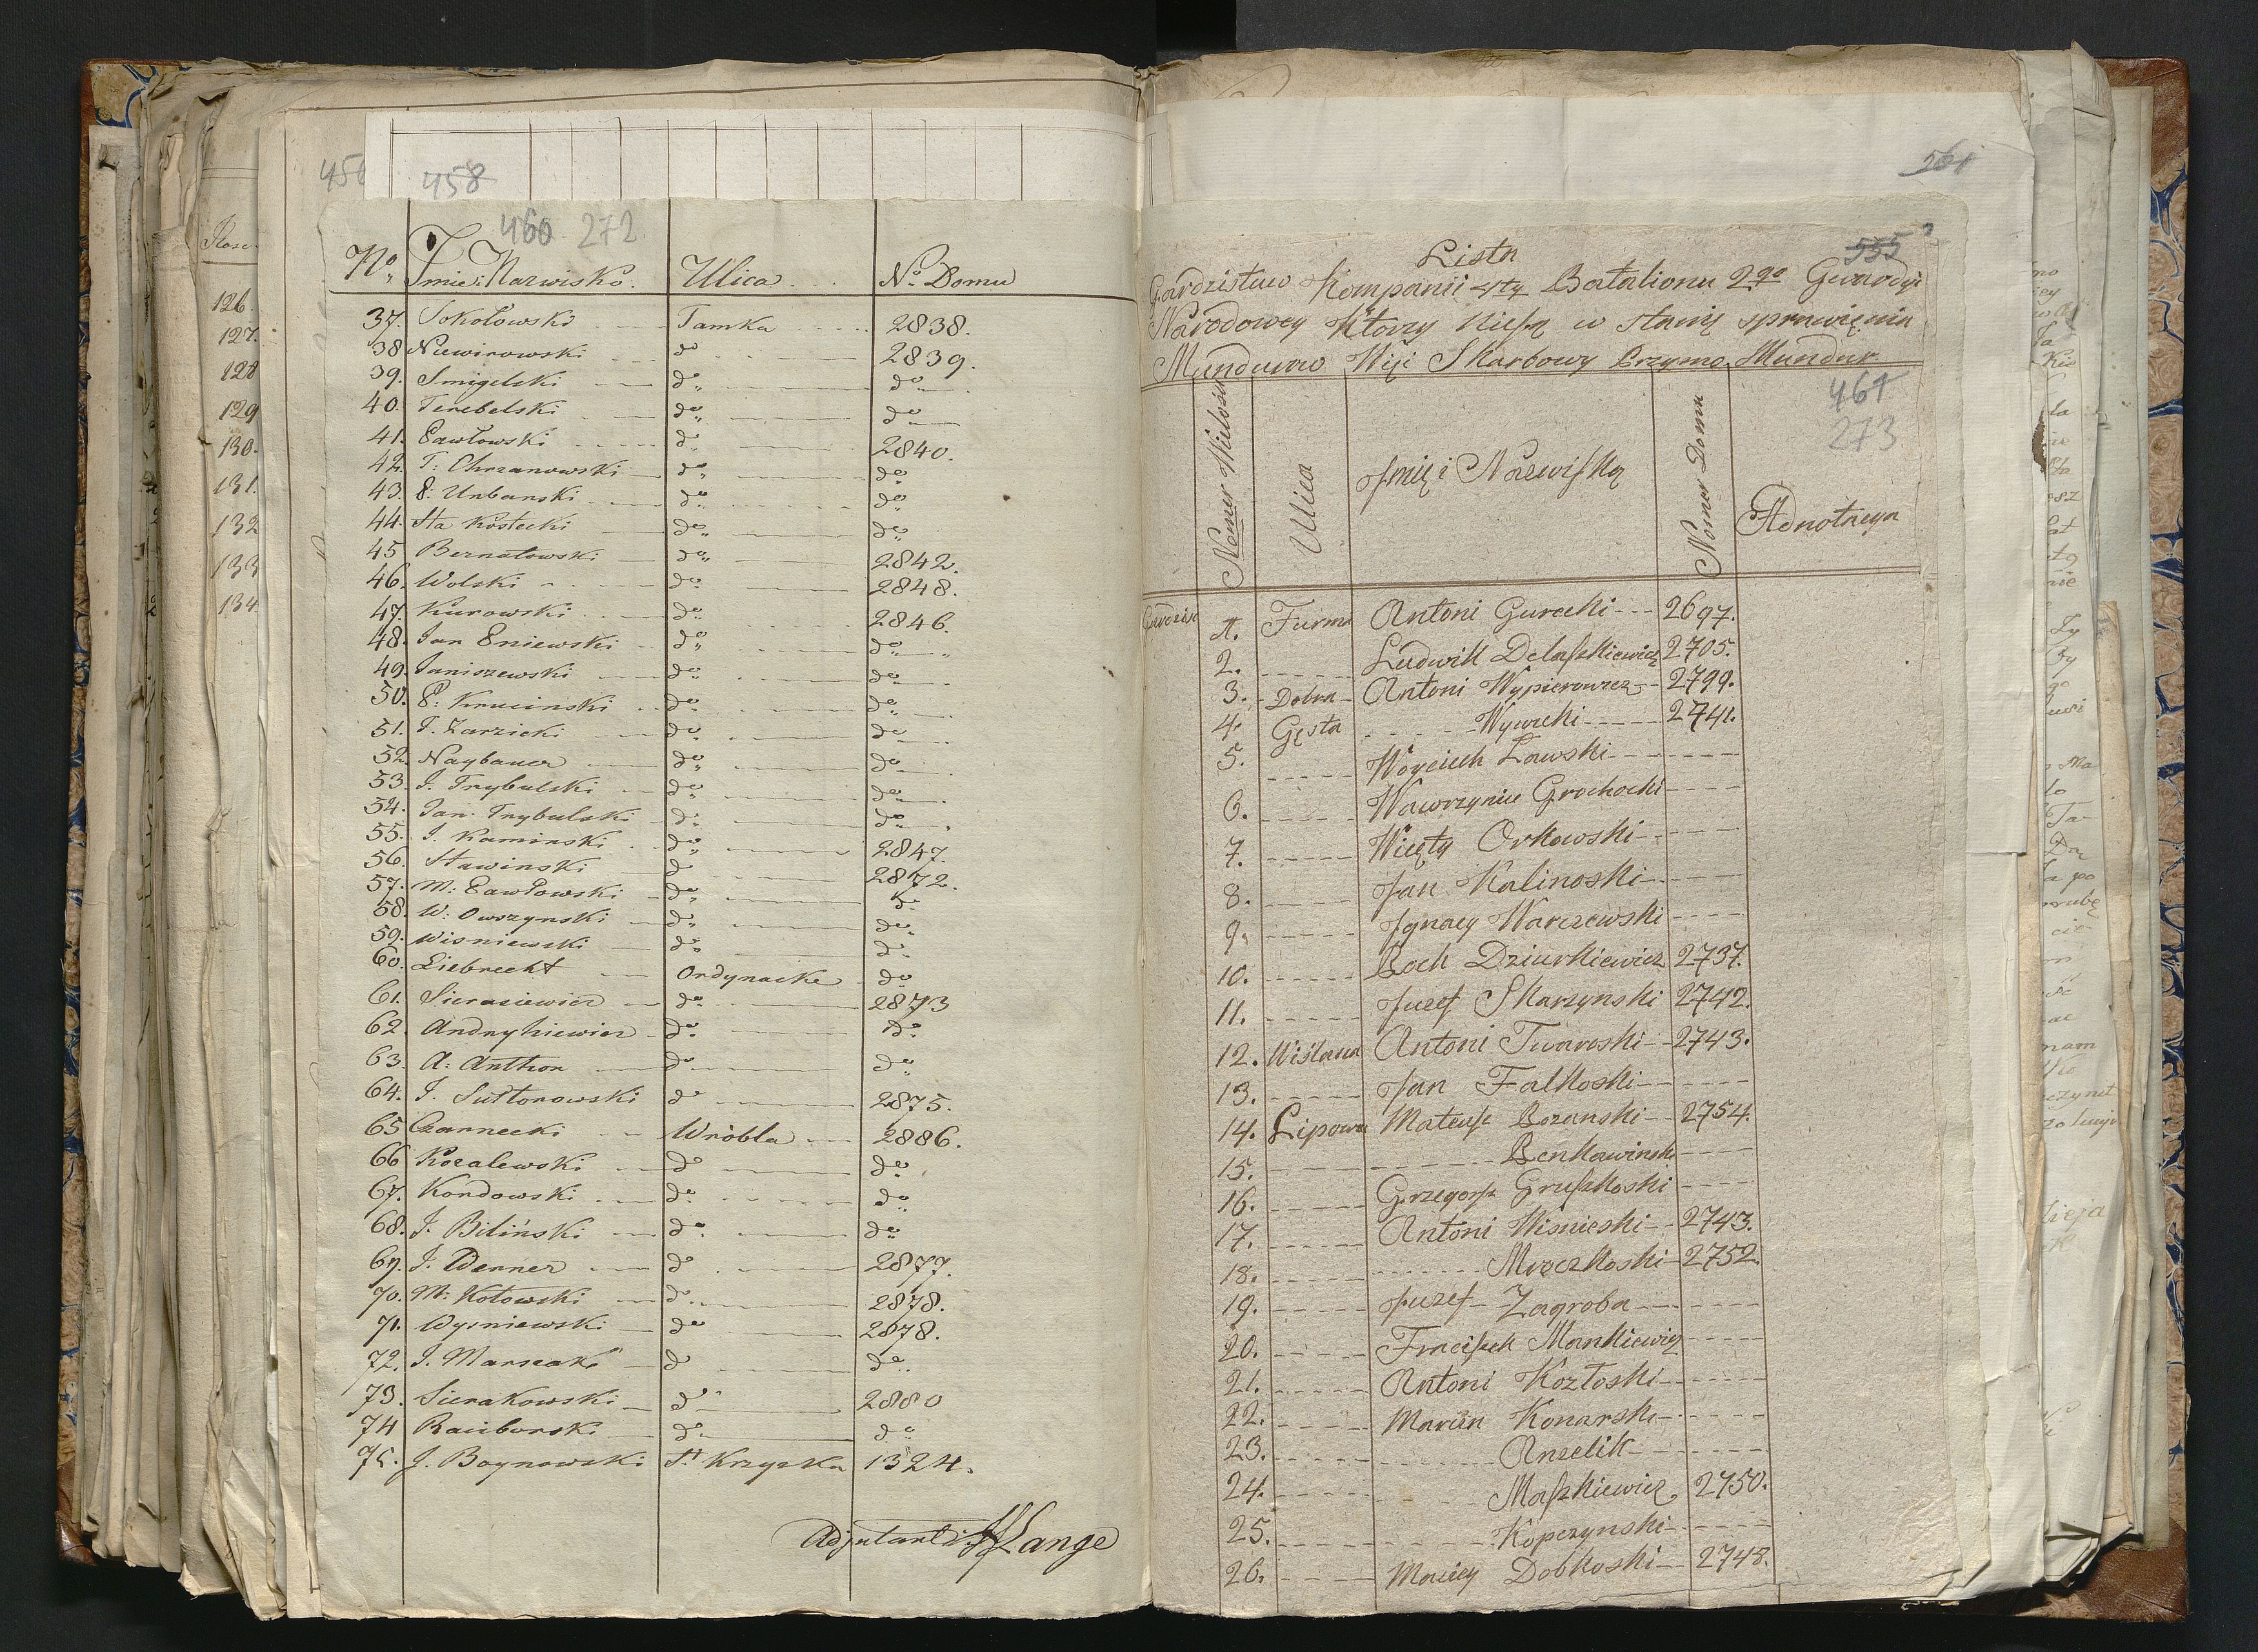 456
458
460 272
No Imie i Nazwisko. Ulica No Domu
37. Sokołowski Tamka 2838.
38 Niewirowski do 2839.
39. Smigelski do do
40. Terebelski do do
41. Pawłowski do 2840.
42. T: Chrzanowski do do
43. P: Urbanski do do
44. Sta Kostecki do do
45 Bernatowski do 2842.
46. Wolski do 2848.
47. Kurowski do 2846.
48. Jan Gniewski do do
49. Janiszewski do do
50. P: Krucinski do do
51. T. Zarzicki do do
52. Naybauer do do
53. J. Trybulski do do
54. Jan Trybulski do do
55. J. Kaminski do 2847.
56. Stawinski do 2872.
57. M: Pawłowski do do
58. W: Owszynski do do
59. Wisniewski do do
60. Liebrecht Ordynacke do
61. Sierasiewicz do 2873
62. Andryhiewicz do do
63. A: Anthon do do
64. J. Suttonowski do 2875.
65 Czarnecki Wróbla 2886.
66 Kozalewski do do
67. Kordowski do do
68. J. Biliński do do
69. J. Denner do 2877.
70. M: Kotowski do 2878.
71. Wysniewski do 2878.
72. J. Marszak do do
73. Sierakowski do 2880
74 Raciborski do do
75. J. Boynowski St Krzyska 1324.
Adjutant Lange
561
555
Lista
Gardzistuw Kompanii 4ty Batalionu 2go Gwardyi
Narodowey Ktorzy Niesą w stanię sprawięnia
Munduruw Więi Skarbowy Przymo Mundur
461
273
Nomer Ulica Jmię i Nazwiſką Nomer Domu Adnotacya
1. Furma Antoni Gurecki 2697.
2. Ludwik Delaſzkiewicz 2705.
3. Dobra Antoni Wypierowicz 2799.
4. Gęsta Wywcki 2741.
5. Woyciech Lawski
6. Wawrzynice Grochocki
7. Więty Orkowski
8. Jan Kalinoski
9. Jgnacy Warczewski
10. Roch Dziurkiewicz 2737.
11. Juzef Skarzynski 2742.
12. Wiślana Antoni Twaroski 2743.
13. Jan Falkoski
14. Lipowa Mateuſz Bozanski 2754.
15. Benkawinsk
16. Grzegorſz Gruſzkoski
17. Antoni Wisnieski 2743.
18. Mroczkoski 2752.
19. Juzef Zagroba
20. Frnciſzek Mankiewicz
21. Antoni Kozłoski
22. Marcin Konarski
23. Anzelik
24. Maſzkiewicz 2750.
25. Kopczynski
26. Maciey Dobkoski 2748.
126.
127.
128
129
130.
131.
132
133
134.